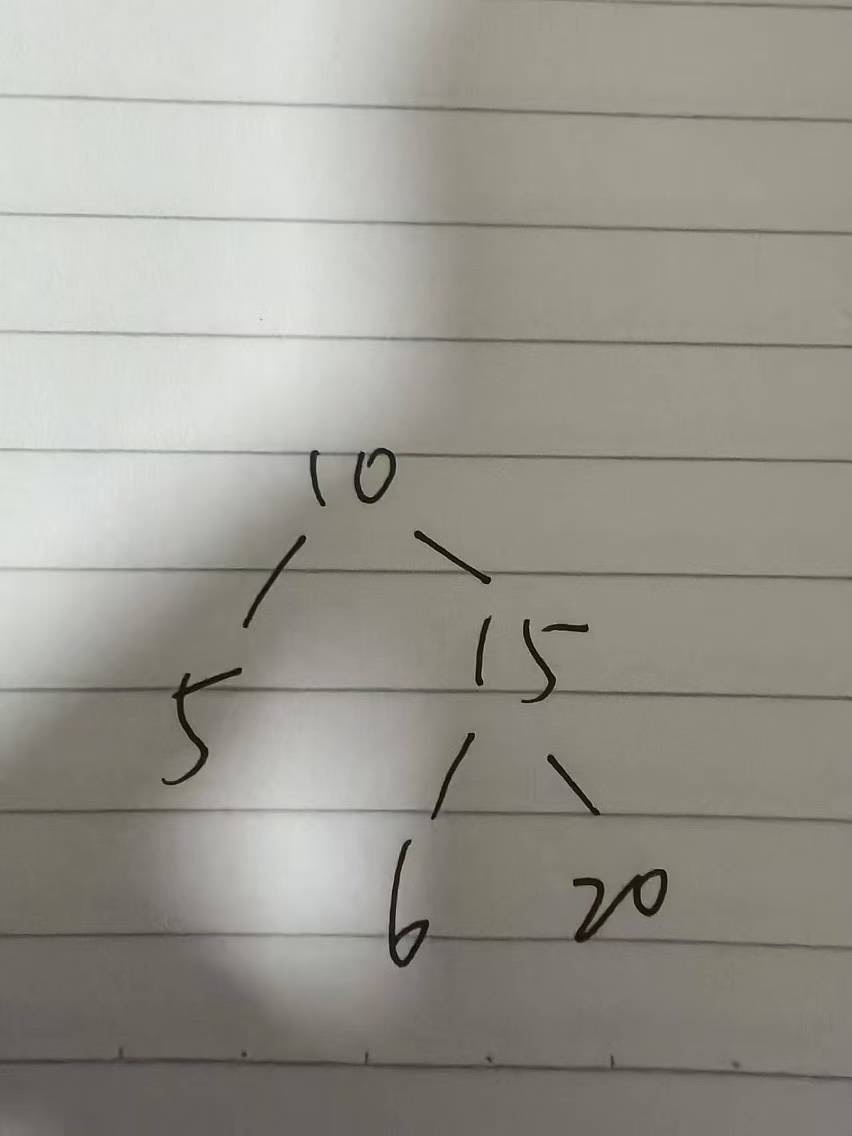 10
5 15
6 20